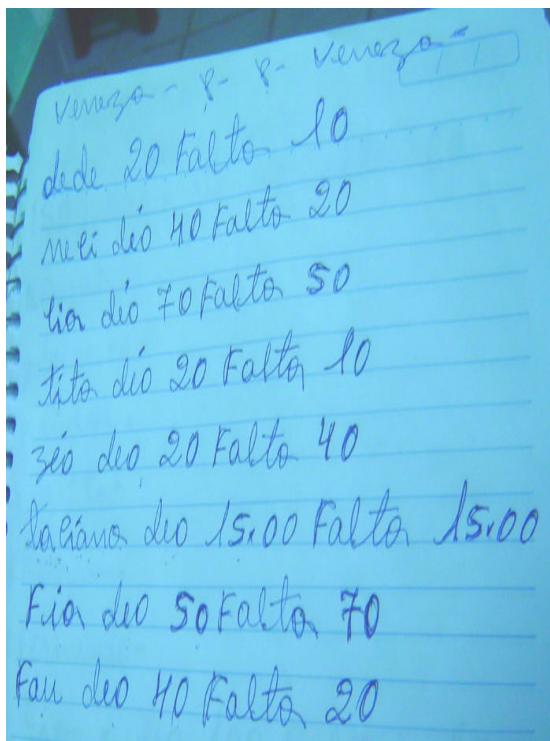 Veneza - 8 - 8 - Veneza -
dede 20 Falta 10
meli déo 40 Falta 20
lia déo 70 Falta 50
tita déo 20 Falta 10
zéo deo 20 Falta 40
deo 15.00 Falta 15.00
Fia deo 50 Falta 70
Fau deo 40 Falta 20